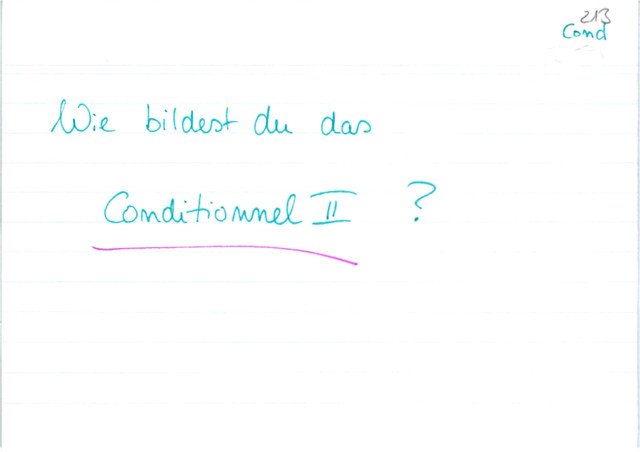 213
Cond
Wie bildest du das
Conditionnel II ?